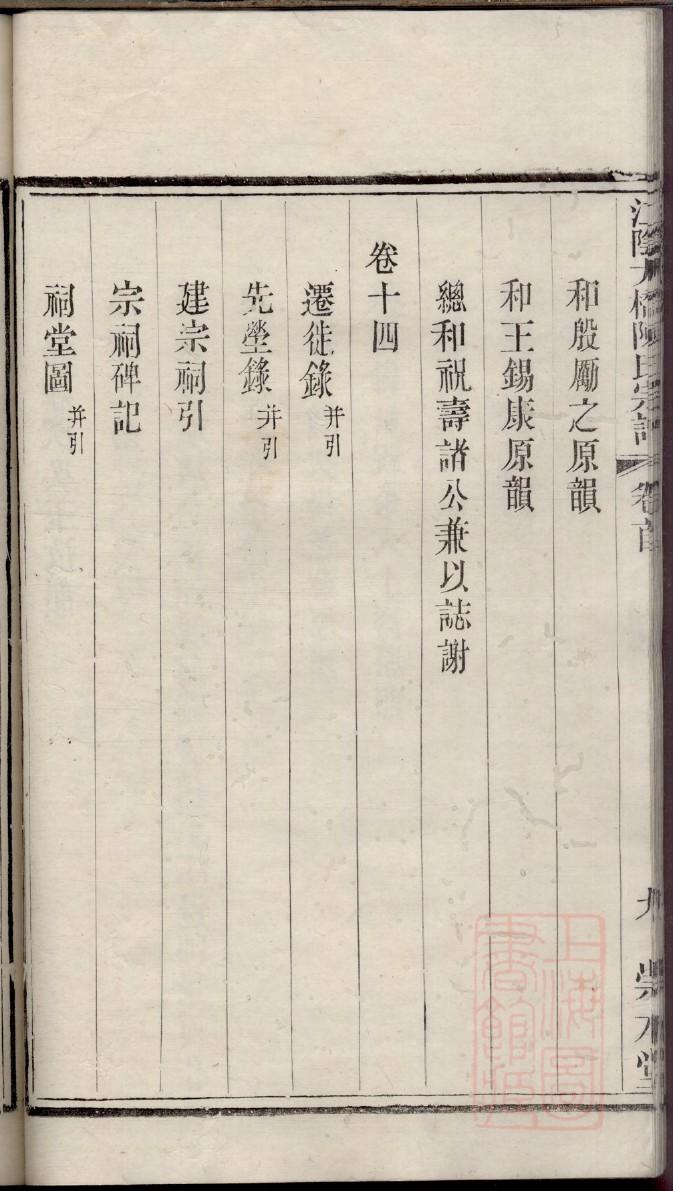 和殷勵之原韻
和王錫康原韻
總和祝壽諸公兼以誌謝
卷十四
遷徙錄 并引
先塋錄 并引
建宗祠引
宗祠碑記
祠堂圖 并引
卷首
九
堂
上海圖書館藏